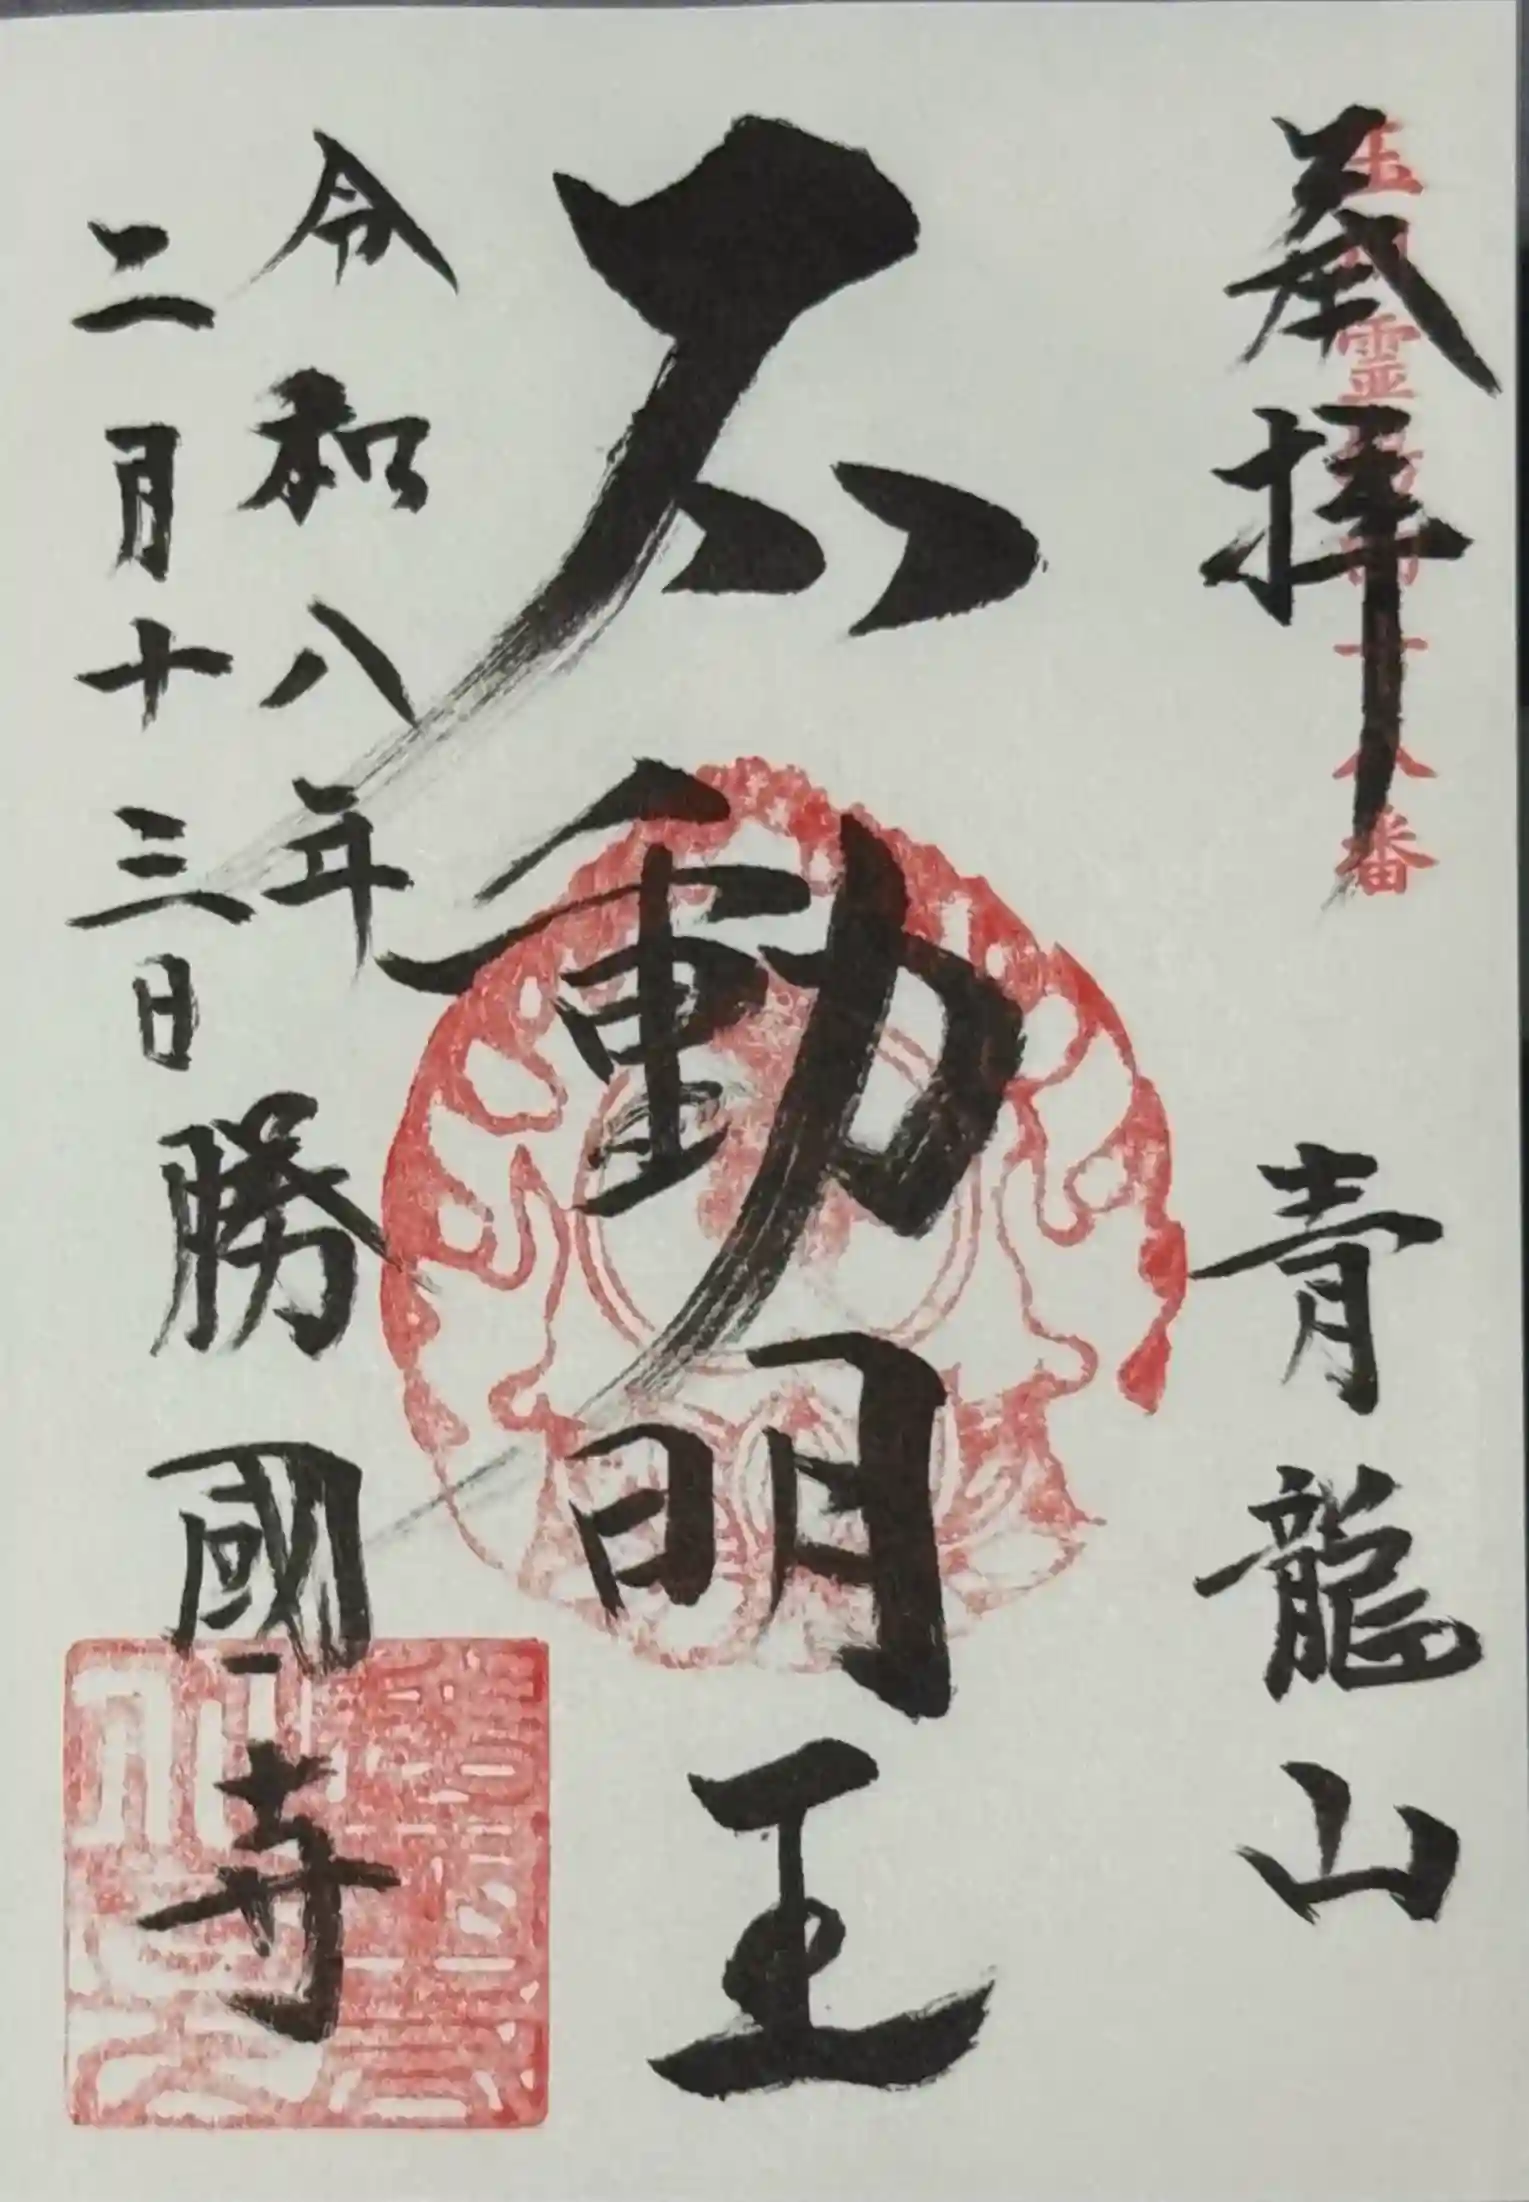 奉拝 青龍山
玉 霊 番
不動明王
令和八年
二月十三日
勝國寺